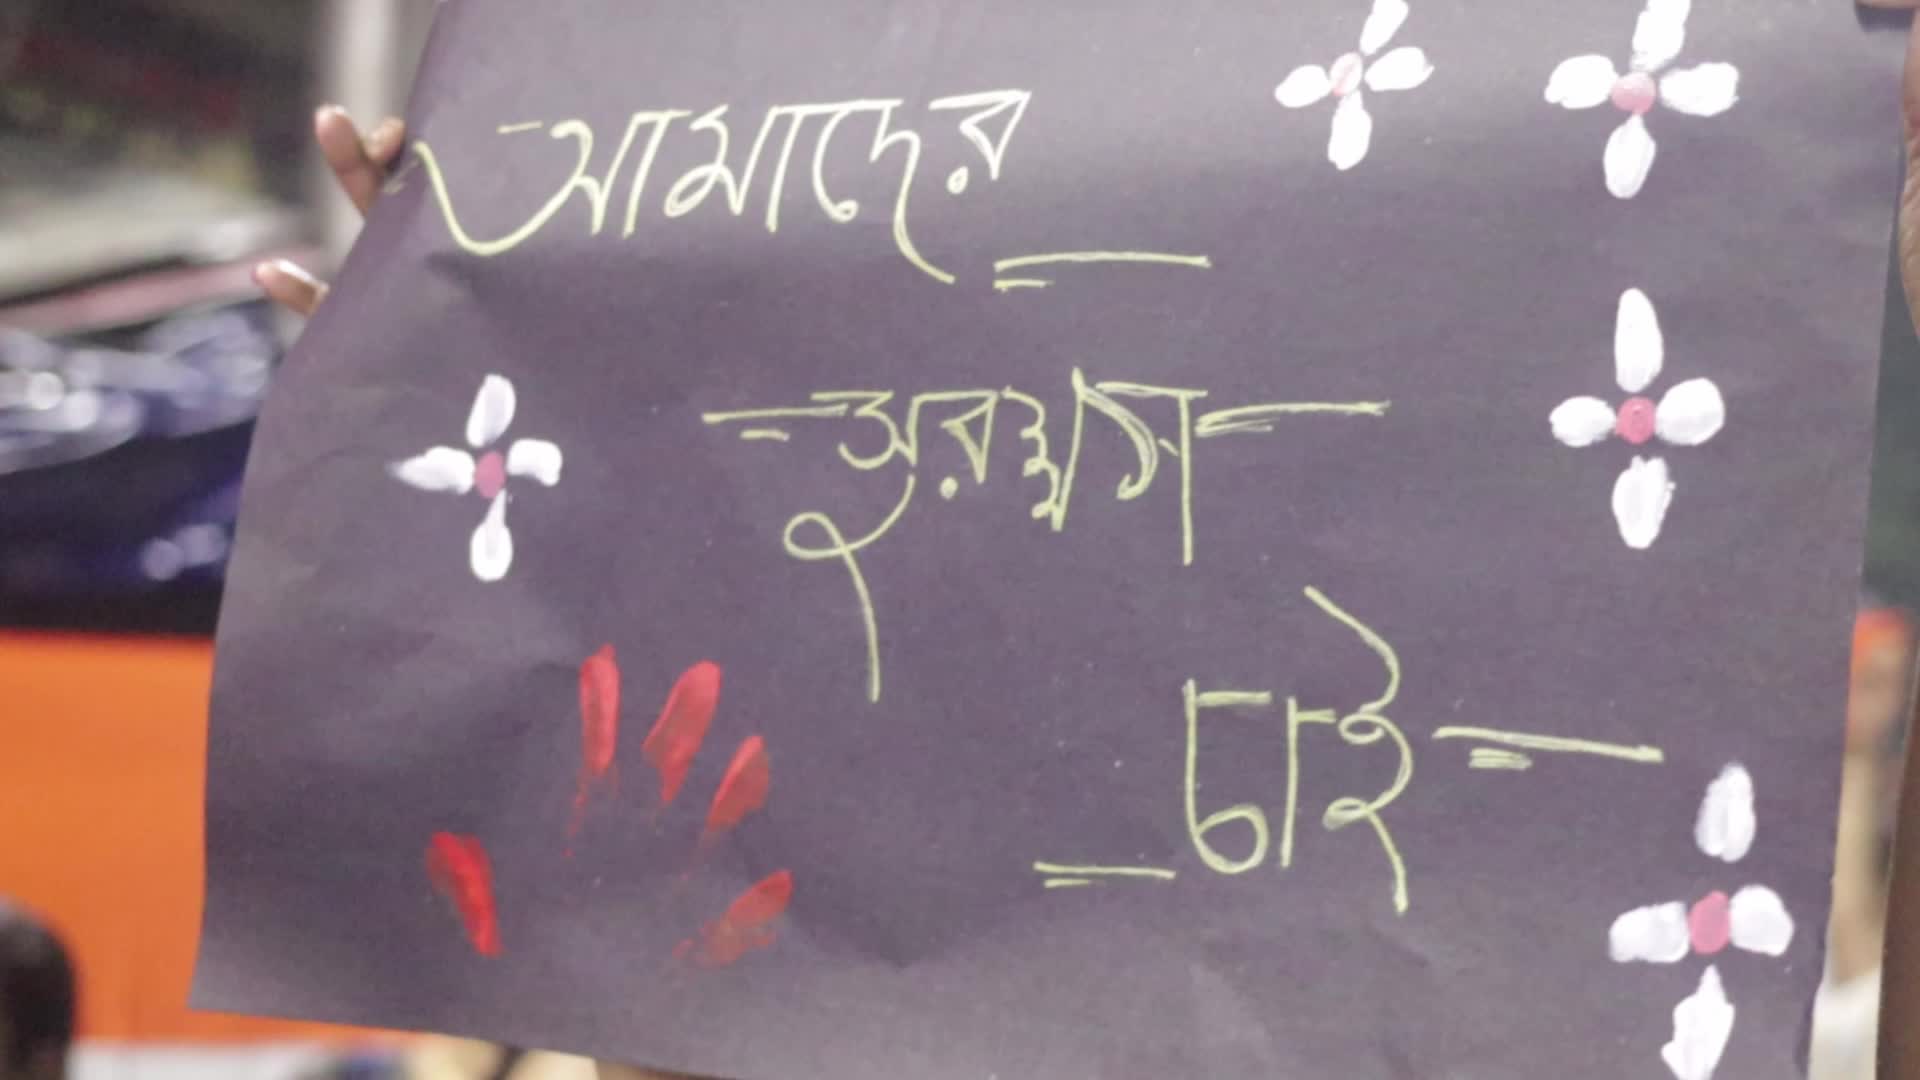 আমাদের
সুরক্ষা
চাই